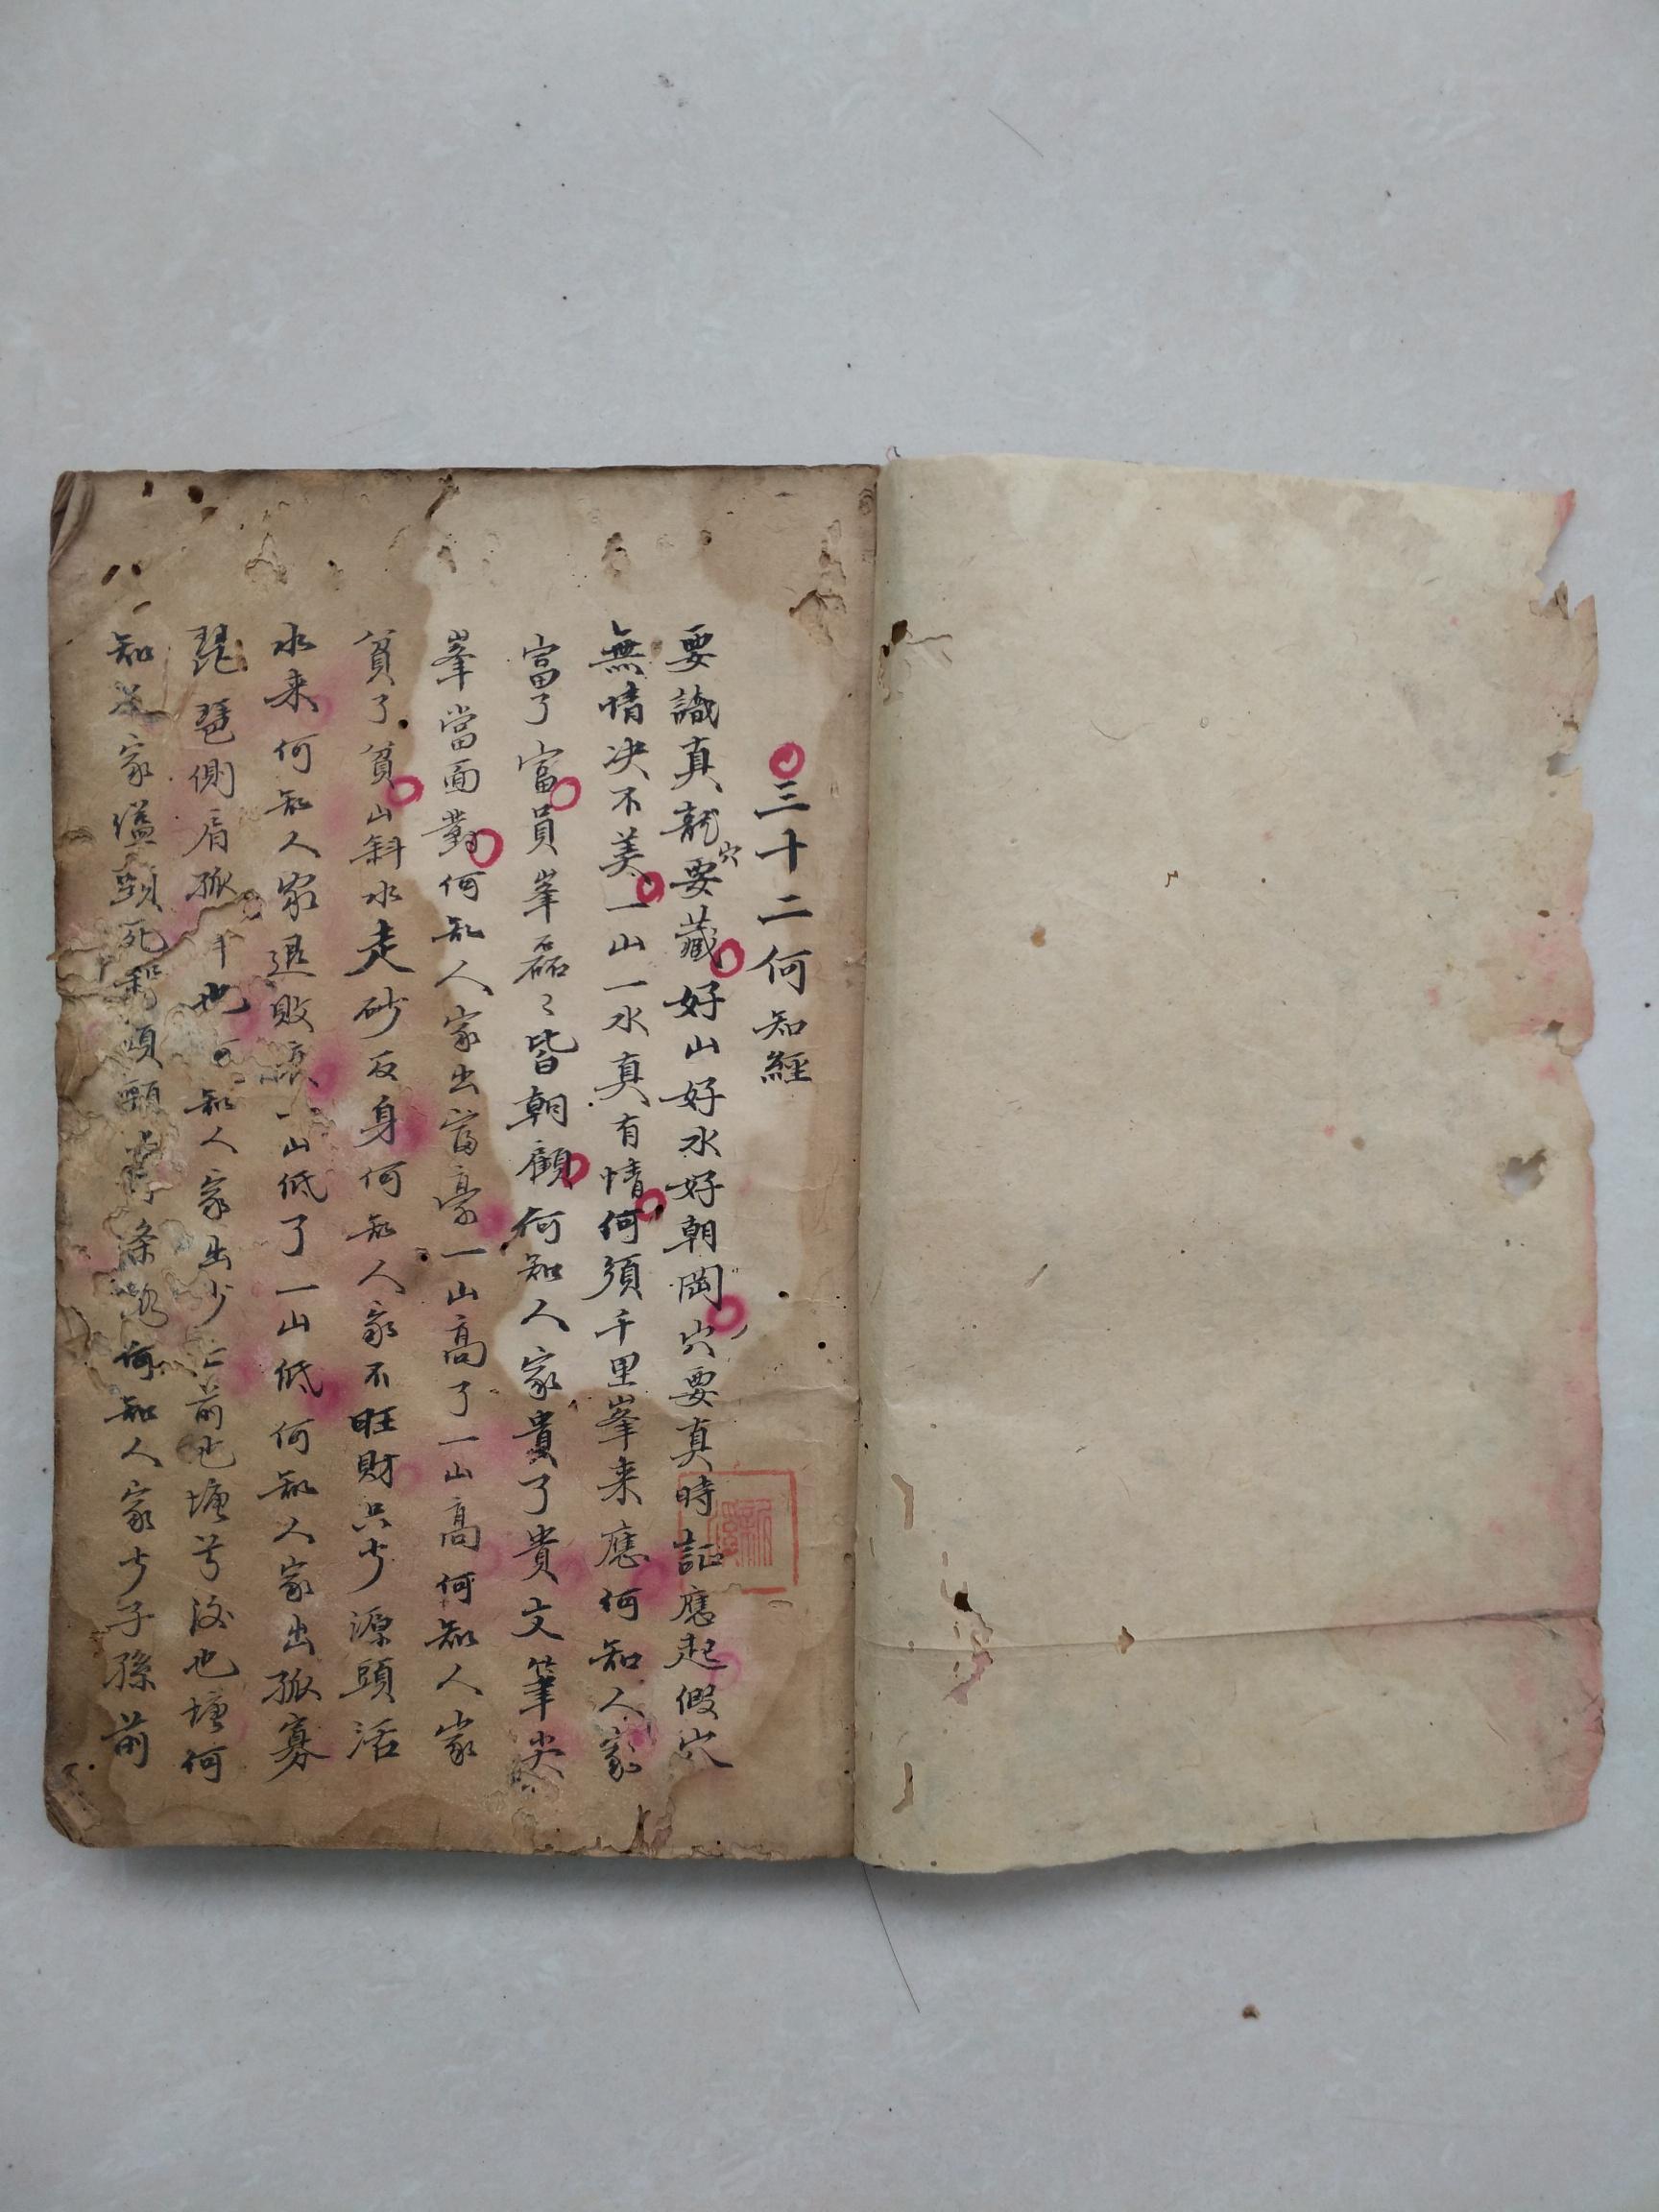 三十二何知經
要識真龍穴要藏好山好水好朝岡穴要真時証應起假穴
無情决不美一山一水真有情何須千里峯来應何知人家
富了富員峯磊〻皆朝顧何知人家貴了貴文筆尖
峯當面對何知人家出富豪一山高了一山高何知人家
貧了貧山斜水走砂反身何知人家不旺財只少源頭活
水来何知人家退敗一山低了一山低何知人家出孤寡
琵琶側肩孤也知人家出少亡前也塘兮後也塘何
知家縊頸死頭何知人家少子孫前